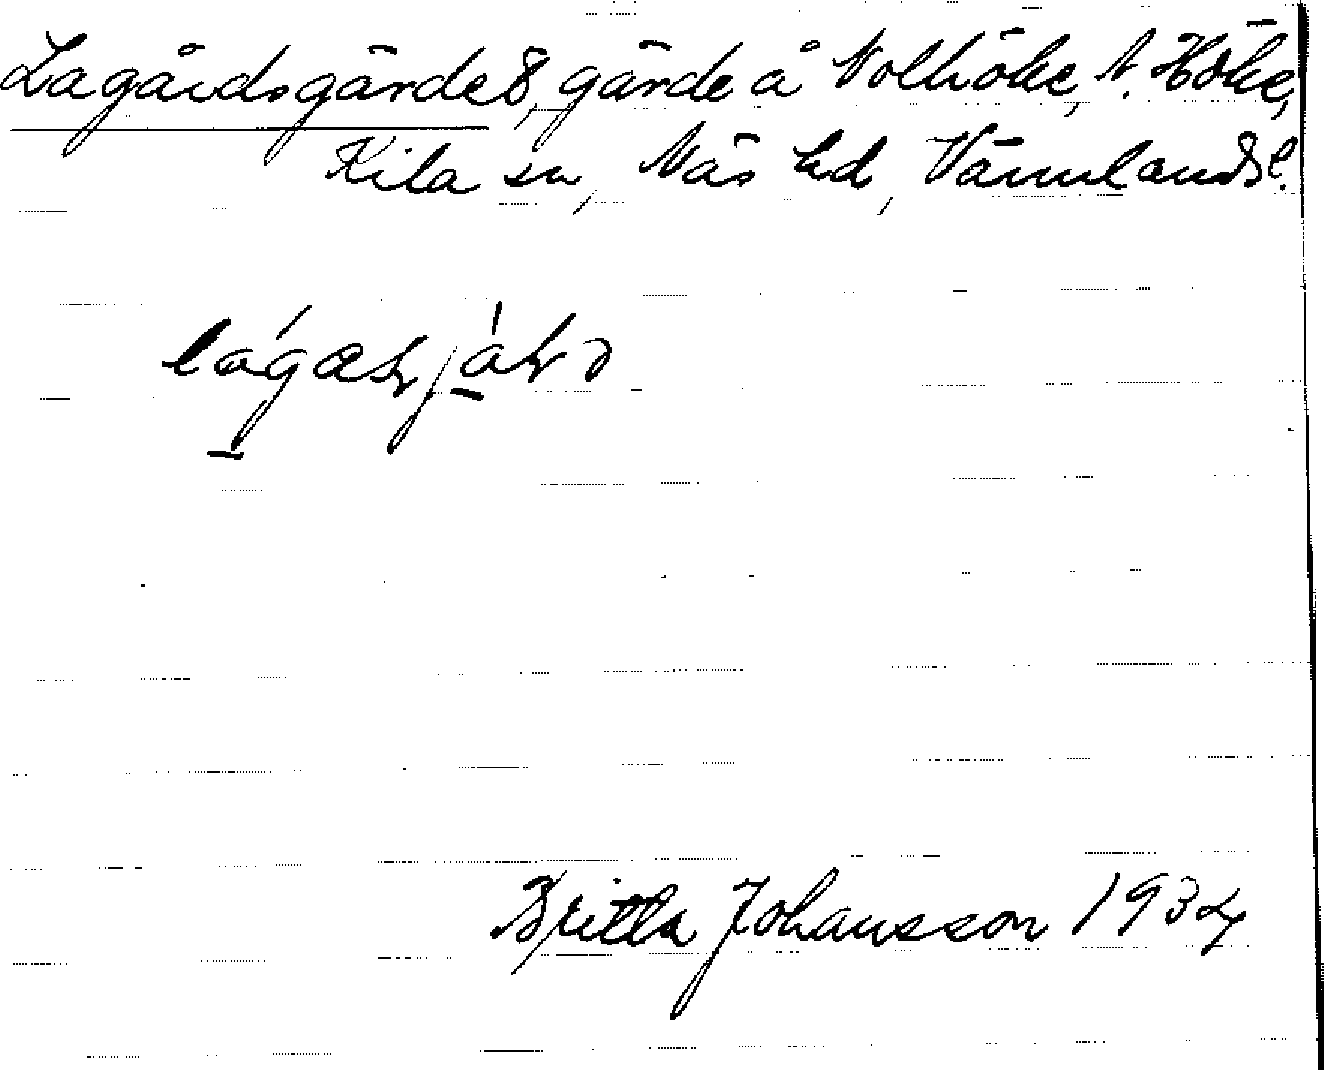 Lagårdsgärdet, gärde å Nolhöke, N. Höke,
Kila sn, Näs hd, Värmlands l.
Britta Johansson 1934